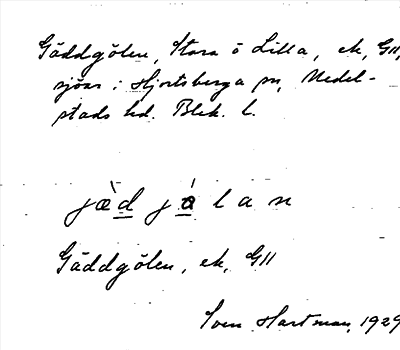 Gäddgölen, Stora o Lilla, ek, G11,
sjöar i Hjortsberga sn, Medel-
stads hd. Blek. l.
jæ̀d jálan
Gäddgölen, ek, G11
Sven Hartman, 1929